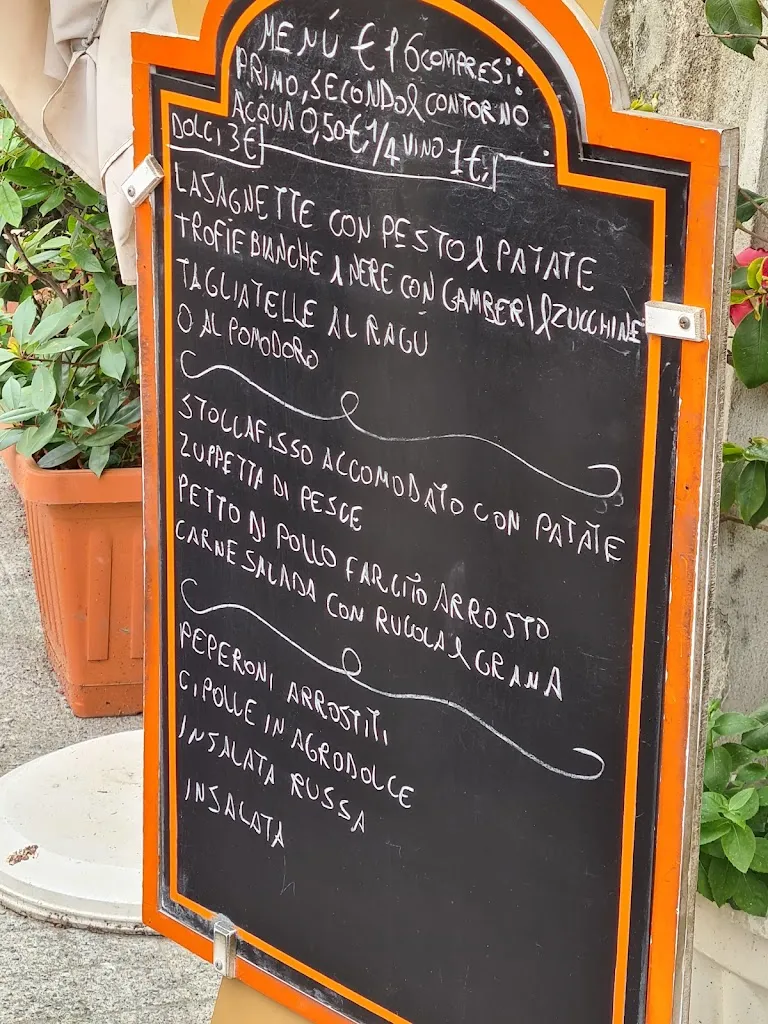 MENÚ € 16 COMPRESI:
PRIMO, SECONDO & CONTORNO
ACQUA 0,50€, 1/4 VINO 1€,
DOLCI 3€
LASAGNETTE CON PESTO & PATATE
TROFIE BIANCHE & NERE CON GAMBERI & ZUCCHINE
TAGLIATELLE AL RAGÚ
O AL POMODORO
STOCCAFISSO ACCOMODATO CON PATATE
ZUPPETTA DI PESCE
PETTO DI POLLO FARCITO ARROSTO
CARNE SALADA CON RUCOLA & GRANA
PEPERONI ARROSTITI
CIPOLLE IN AGRODOLCE
INSALATA RUSSA
INSALATA